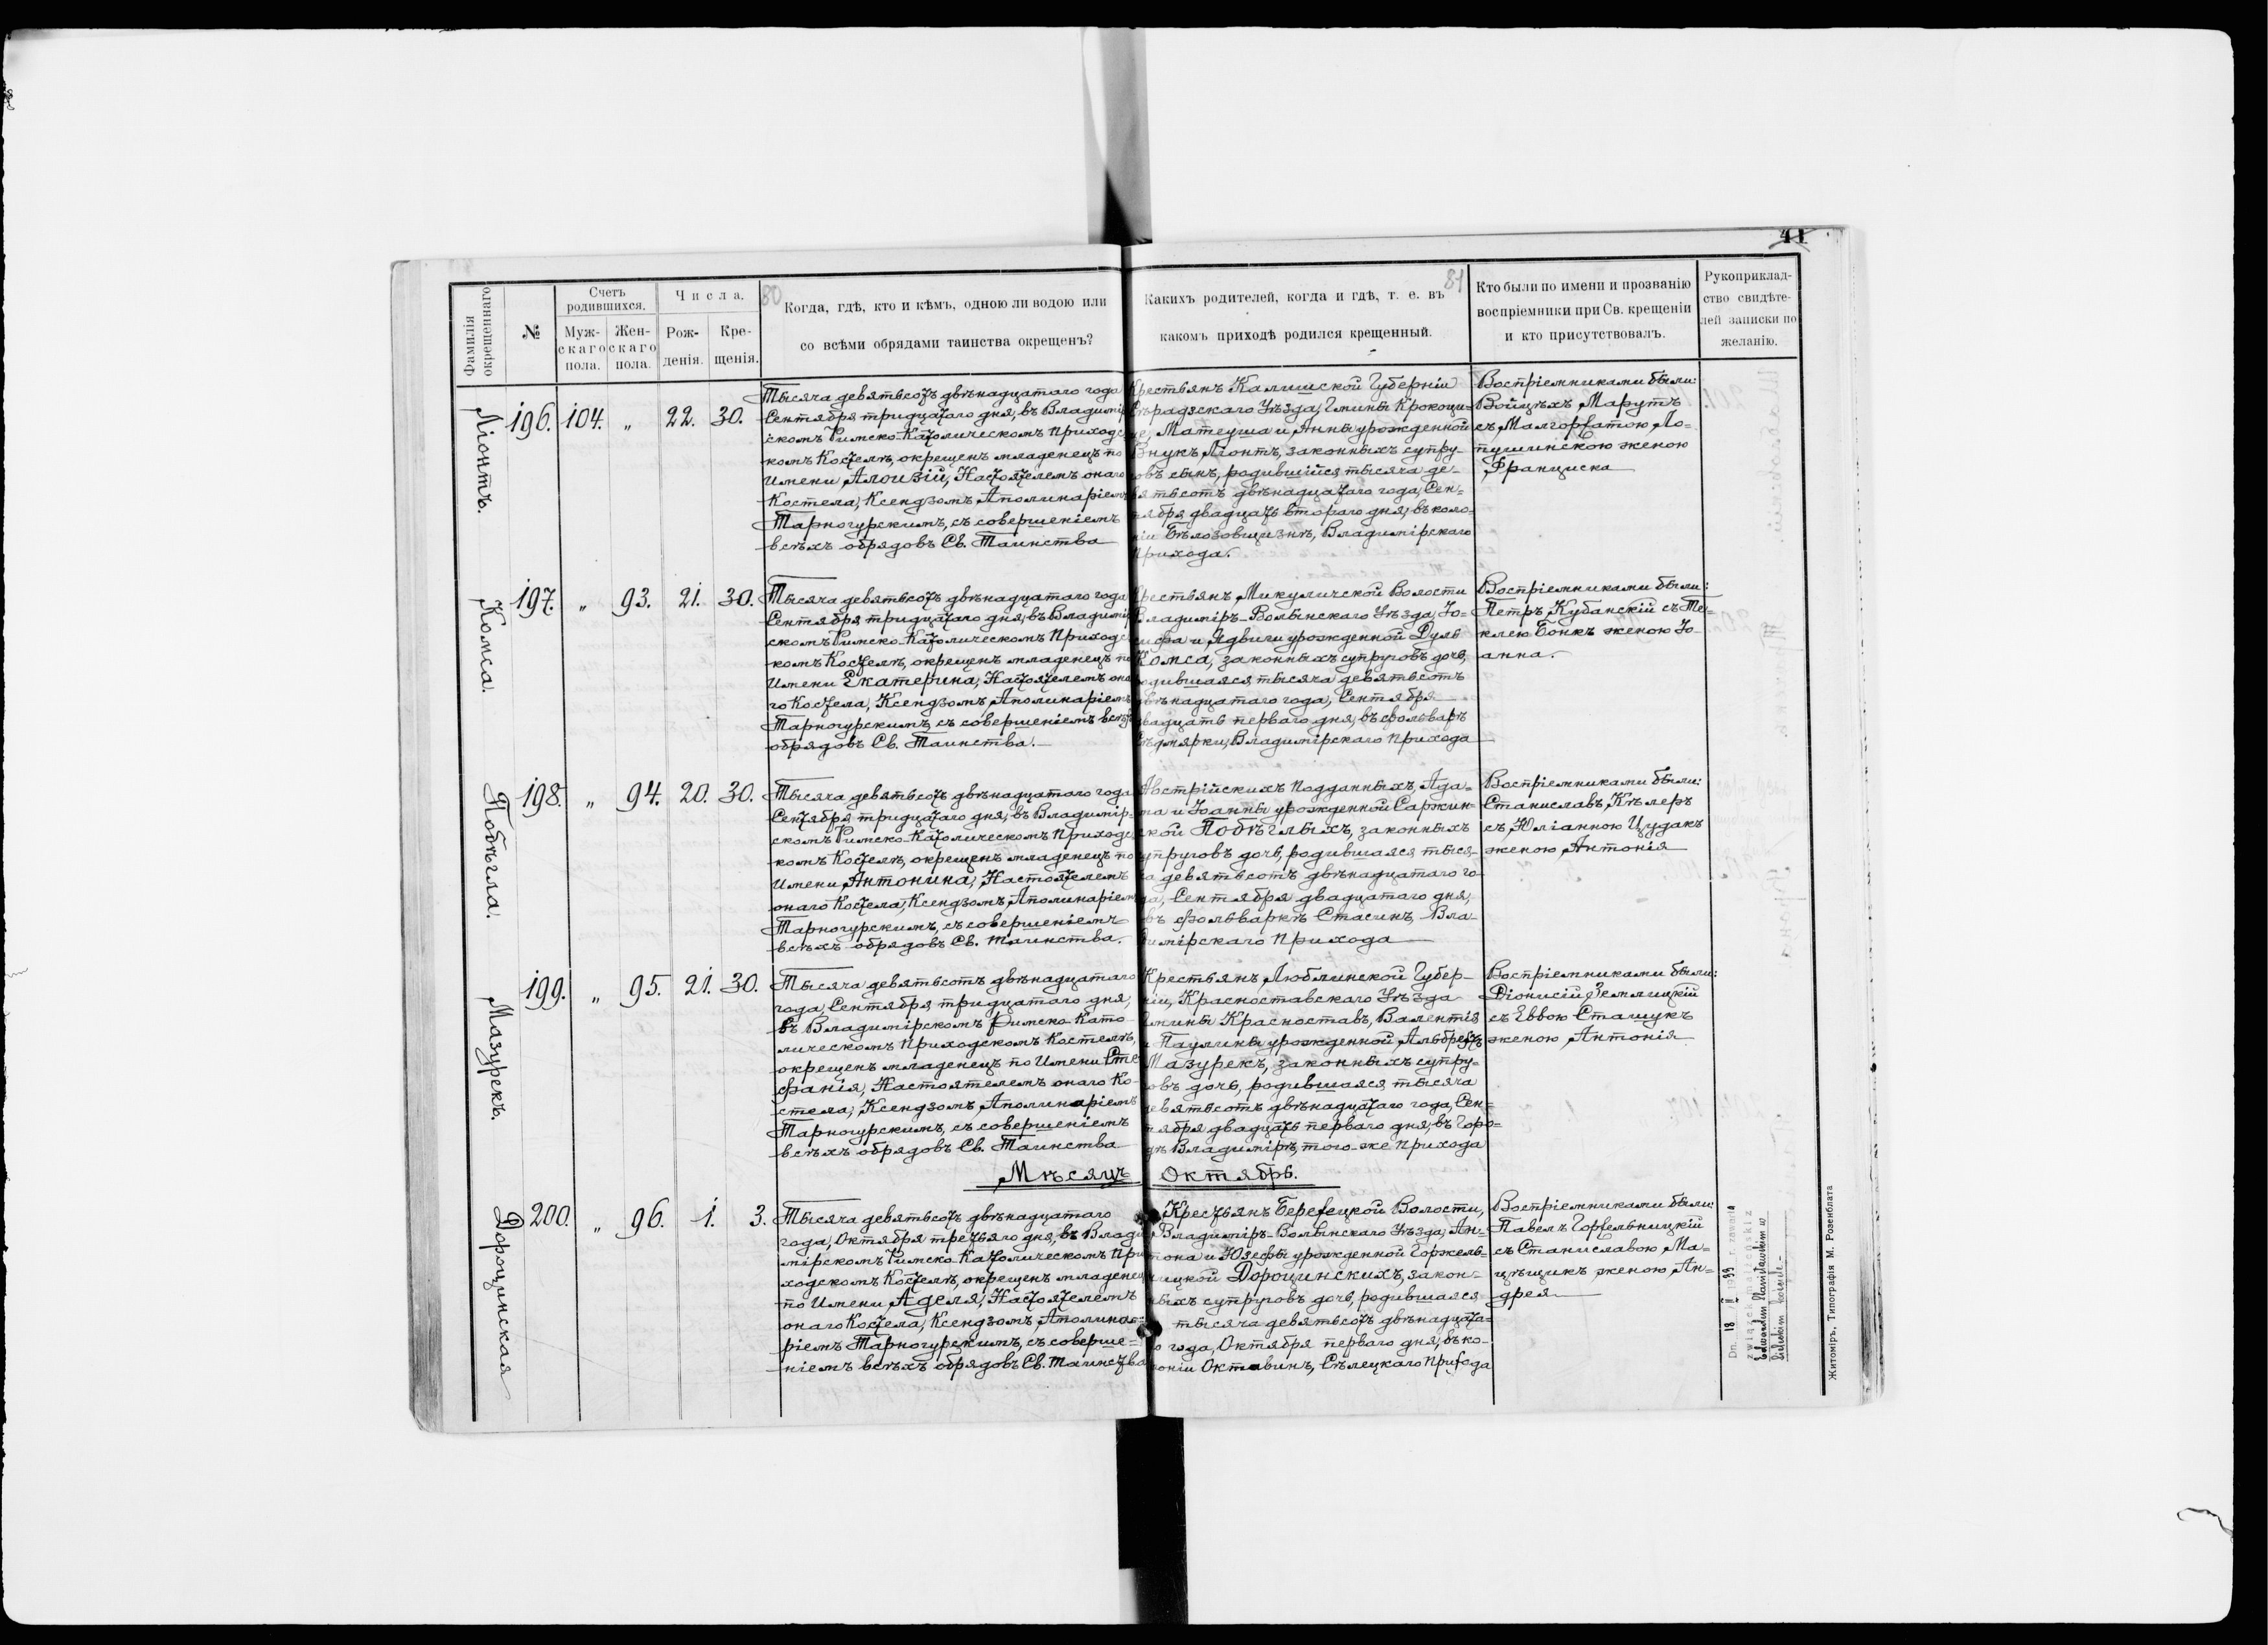 41
80
81
Фамилія окрещеннаго
№
Счетъ родившихся.
Муж-скаго пола.
Жен-скаго пола.
Числа.
Рож-денія.
Кре-щенія.
Когда, гдѣ, кто и кѣмъ, одною ли водою или
со всѣми обрядами таинства окрещенъ?
Какихъ родителей, когда и гдѣ, т. е. въ
какомъ приходѣ родился крещенный.
Кто были по имени и прозванію
воспріемники при Св. крещеніи
и кто присутствовалъ.
Рукоприклад-
ство свидѣте-
лей записки по
желанію.
Ліонтъ.
196. 104. „ 22. 30.
Тысяча девятьсотъ двѣнадцатаго года
Сентября тридцатаго дня, въ Владимір
скомъ Римско-Католическомъ Приходс
комъ Костелѣ, окрещенъ младенецъ по
Имени Алоизій, Настоятелемъ онаго
Костела, Ксендзомъ Аполинаріемъ
Тарногурскимъ, съ совершеніемъ
всѣхъ обрядовъ Св. Таинства
Крестьянъ Калишской Губерніи
Сѣрадзскаго Уѣзда, Гмины Крокоци-
це, Матеуша и Анны урожденной
Внукъ, Ліонтъ, законныхъ супру-
овъ сынъ, родившійся тысяча де-
вятьсотъ двѣнадцатаго года, Сен-
тября двадцать втораго дня, въ коло-
ніи Бѣлозовщизнѣ, Владимірскаго
Прихода.
Воспріемниками были:
Войцѣхъ Марутъ
съ Малгоржатою Ло-
пушинскою женою
Франциска
Комса.
197. „ 93. 21. 30.
Тысяча девятьсотъ двѣнадцатаго года
Сентября тридцатаго дня, въ Владимір
скомъ Римско-Католическомъ Приходс
комъ Костелѣ, окрещенъ младенецъ по
Имени Екатерина, Настоятелемъ она
го Костела, Ксендзомъ Аполинаріемъ
Тарногурскимъ, съ совершеніемъ всѣхъ
обрядовъ Св. Таинства.
Крестьянъ, Микуличской Волости
Владиміръ-Волынскаго Уѣзда, Іо-
сифа и Ядвиги урожденной Дуль
Комса, законныхъ супруговъ дочь,
родившаяся тысяча девятьсотъ
двѣнадцатаго года, Сентября
двадцать перваго дня, въ фольварѣ
Владимірскаго Прихода
Воспріемниками были:
Петръ Кубанскій съ Те-
клею Бонкъ женою Іо-
анна.
Побѣгла.
198. „ 94. 20. 30.
Тысяча девятьсотъ двѣнадцатаго года
Сентября тридцатаго дня, въ Владимір-
скомъ Римско-Католическомъ Приходс
комъ Костелѣ, окрещенъ младенецъ по
Имени Антонина, Настоятелемъ
онаго Костела, Ксендзомъ Аполинаріемъ
Тарногурскимъ, съ совершеніемъ
всѣхъ обрядовъ Св. Таинства.
Австрійскихъ Подданныхъ, Ада-
ма и Іоанны урожденной Саржин-
ской Побѣглыхъ, законныхъ
супруговъ дочь, родившаяся тыся-
ча девятьсотъ двѣнадцатаго го-
да, Сентября двадцатаго дня,
въ фольваркѣ Стасинъ, Вла-
димірскаго Прихода
Воспріемниками были:
Станиславъ Кѣлеръ
съ Юліанною Цудакъ
женою Антонія
Мазурекъ.
199. „ 95. 21. 30.
Тысяча девятьсотъ двѣнадцатаго
года, Сентября тридцатаго дня,
въ Владимірскомъ Римско-Като-
лическомъ Приходскомъ Костелѣ,
окрещенъ младенецъ по Имени Сте
фанія, Настоятелемъ онаго Ко-
стела, Ксендзомъ Аполинаріемъ
Тарногурскимъ, съ совершеніемъ
всѣхъ обрядовъ Св. Таинства
Крестьянъ Люблинской Губер-
ніи, Красноставскаго Уѣзда
Гмины Красноставъ, Валентія
и Паулины урожденной Альбрехтъ
Мазурекъ, законныхъ супру-
овъ дочь, родившаяся тысяча
девятьсотъ двѣнадцатаго года, Сен-
тября двадцать перваго дня, въ Горо-
дѣ Владимірѣ, того-же Прихода
Воспріемниками были:
Діонисій Землицкій
съ Еввою Сташукъ
женою Антонія
Мѣсяцъ Октябрь.
Дороцинская
200. „ 96. 1. 3.
Тысяча девятьсотъ двѣнадцатаго
года, Октября третьяго дня, въ Влади
мірскомъ Римско-Католическомъ При
ходскомъ Костелѣ, окрещенъ младенец
по Имени Аделя, Настоятелемъ
онаго Костела, Ксендзомъ Аполина-
ріемъ Тарногурскимъ, съ соверше-
ніемъ всѣхъ обрядовъ Св. Таинства
Крестьянъ Березецкой Волости,
Владиміръ-Волынскаго Уѣзда, Ан-
тона и Юзефы урожденной Горжель-
ницкой Дороцинскихъ, закон-
ныхъ супруговъ дочь, родившаяся
тысяча девятьсотъ двѣнадцата-
го года, Октября перваго дня, въ ко-
лоніи Октавинъ, Сѣлецкаго Прихода
Воспріемниками были:
Павелъ Горжельницкій
съ Станиславою Ма-
цѣщикъ женою Ан-
дрея
Dn. 18 / II 1939 r. zawarła
związek małżeński z
Edwardem Stanisławskim w
Житоміръ, Типографія М. Розенблата